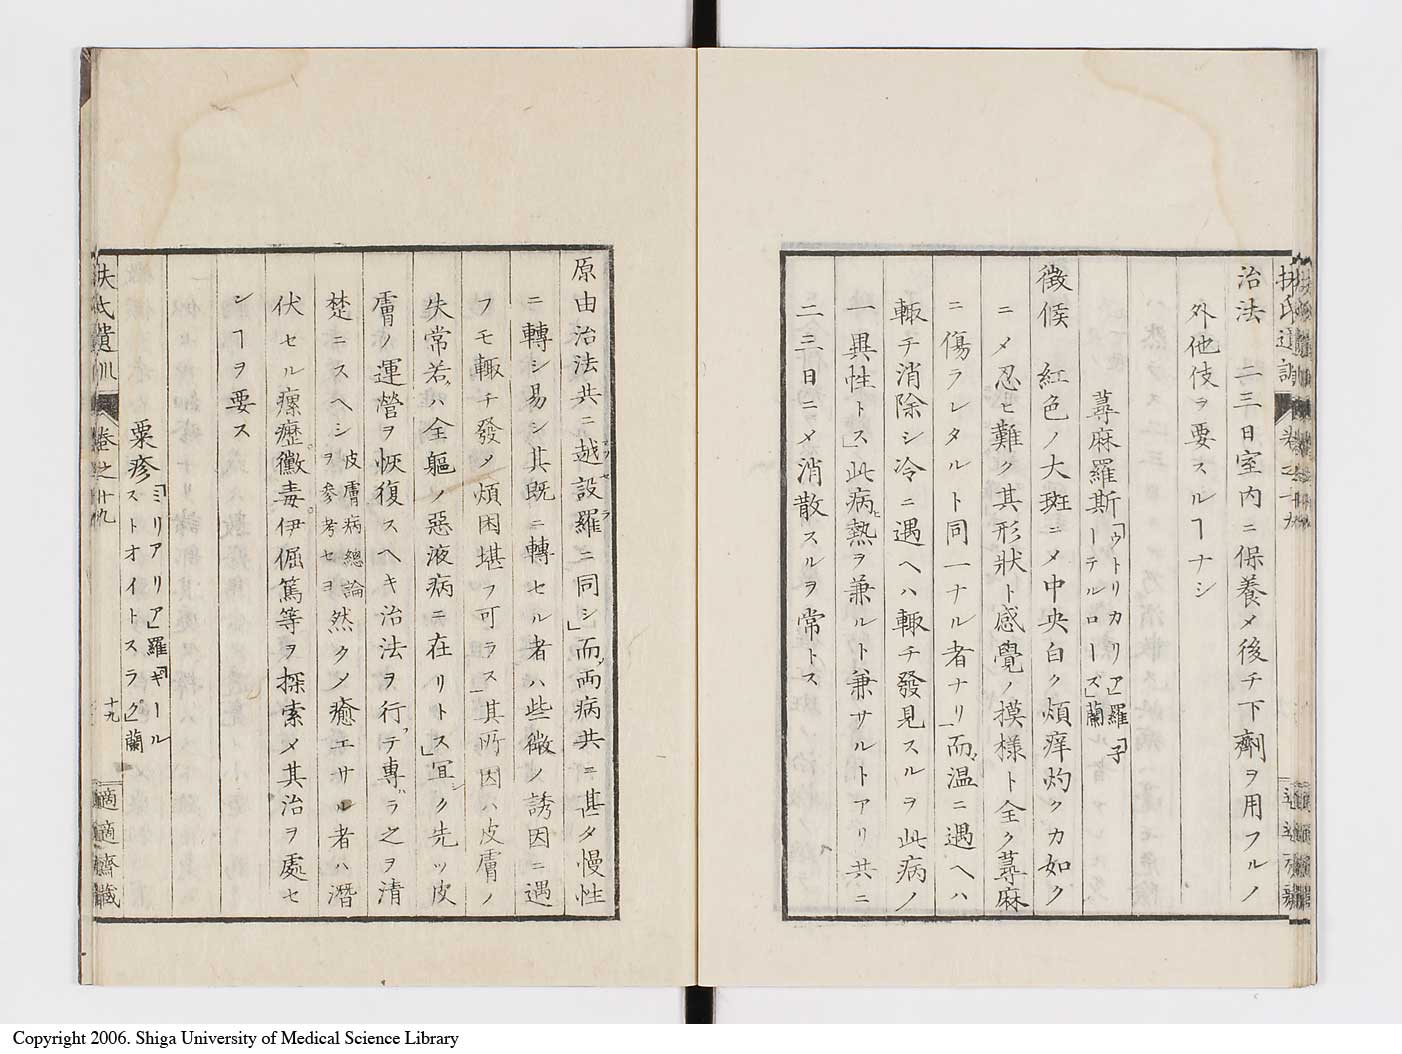 治法　二三日室内ニ保養メ後チ下劑ヲ用フルノ
外他伎ヲ要スルヿナシ
蕁麻羅斯「ウトリカリア」羅「子
ーテルローズ」蘭
徴候　紅色ノ大斑ニメ中央白ク煩痒灼クカ如ク
ニメ忍ヒ難ク其形狀ト感覺ノ摸樣ト全ク蕁麻
ニ傷ラレタルト同一ナル者ナリ」而温ニ遇ヘハ
輙チ消除シ冷ニ遇ヘハ輙チ發見スルヲ此病ノ
一異性トス」此病熱ヲ兼ルト兼サルトアリ共ニ
二三日ニメ消散スルヲ常トス
原由治法共ニ越設羅ニ同シ」而両病共ニ甚タ慢性
ニ轉シ易シ其既ニ轉セル者ハ些微ノ誘因ニ遇
フモ輙チ發メ煩困堪フ可ラス」其所因ハ皮膚ノ
失常若ハ全軀ノ惡液病ニ在リトス」宜ク先ツ皮
膚ノ運營ヲ恢復スヘキ治法ヲ行テ專ラ之ヲ清
楚ニスヘシ皮膚病總論ヲ參考セヨ然クメ癒エサル者ハ潛
伏セル瘰癧。黴毒。伊倔篤等ヲ探索メ其治ヲ處セ
シヿヲ要ス
粟疹「ミリアリア」羅「ギール
ストオイトスラク」蘭
扶氏遺訓　卷之十九　十九　適適齋藏